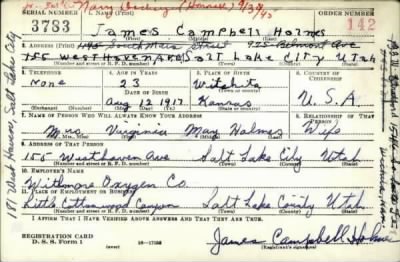 SERIAL NUMBER 1. NAME (Print) ORDER NUMBER
3783 James Campbell Holmes 142
(First) (Middle) (Last)
2. ADDRESS (Print)
155 West Haven Ave Salt Lake City Utah
3. TELEPHONE 4. AGE IN YEARS 5. PLACE OF BIRTH 6. COUNTRY OF CITIZENSHIP
None 23 Wichita
DATE OF BIRTH
Aug 12 1917 Kansas U.S.A.
(Exchange) (Number) (Mo.) (Day) (Yr.) (State or country)
7. NAME OF PERSON WHO WILL ALWAYS KNOW YOUR ADDRESS 8. RELATIONSHIP OF THAT PERSON
Mrs. Virginia May Holmes Wife
(Mr., Mrs., Miss) (First) (Middle) (Last)
9. ADDRESS OF THAT PERSON
155 West Haven Ave Salt Lake City Utah
(Number and street or R. F. D. number) (Town) (County) (State)
10. EMPLOYER'S NAME
Whitmore Oxygen Co.
11. PLACE OF EMPLOYMENT OR BUSINESS
Little Cottonwood Canyon Salt Lake County Utah
(Number and street or R. F. D. number) (Town) (County) (State)
I AFFIRM THAT I HAVE VERIFIED ABOVE ANSWERS AND THAT THEY ARE TRUE.
REGISTRATION CARD
D. S. S. Form 1 16-17105 James Campbell Holmes
(Registrant's signature)
181 West Haven Salt Lake City